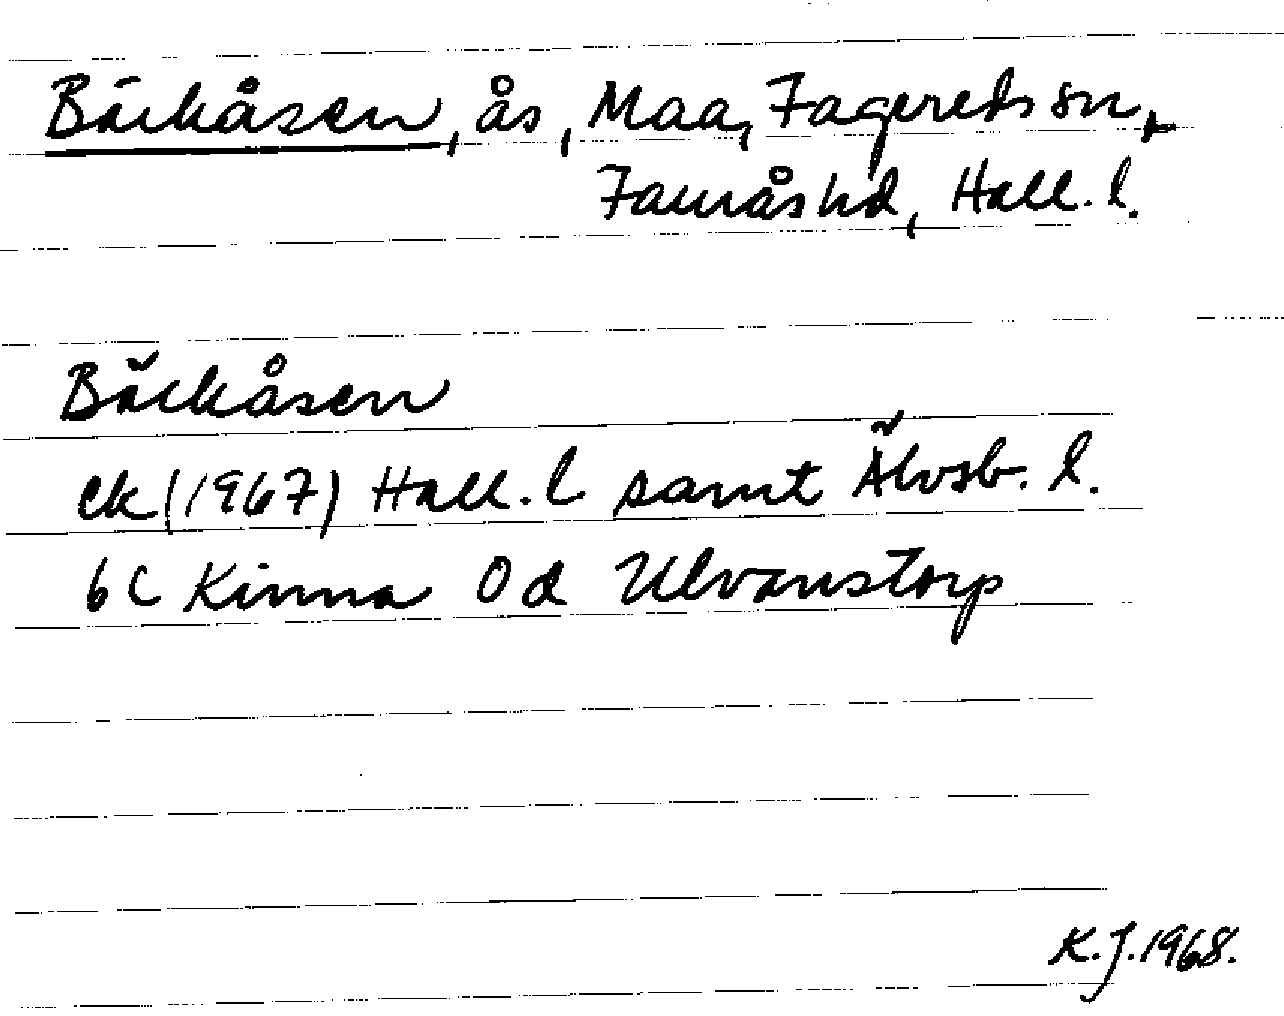 Bäckåsen, ås, Maa, Fagereds sn,
Fauråshd, Hall. l.
Bäckåsen
ek (1967) Hall. l samt Älvsb. l.
6C Kinna 0d Ulvanstorp
K.J.1968.